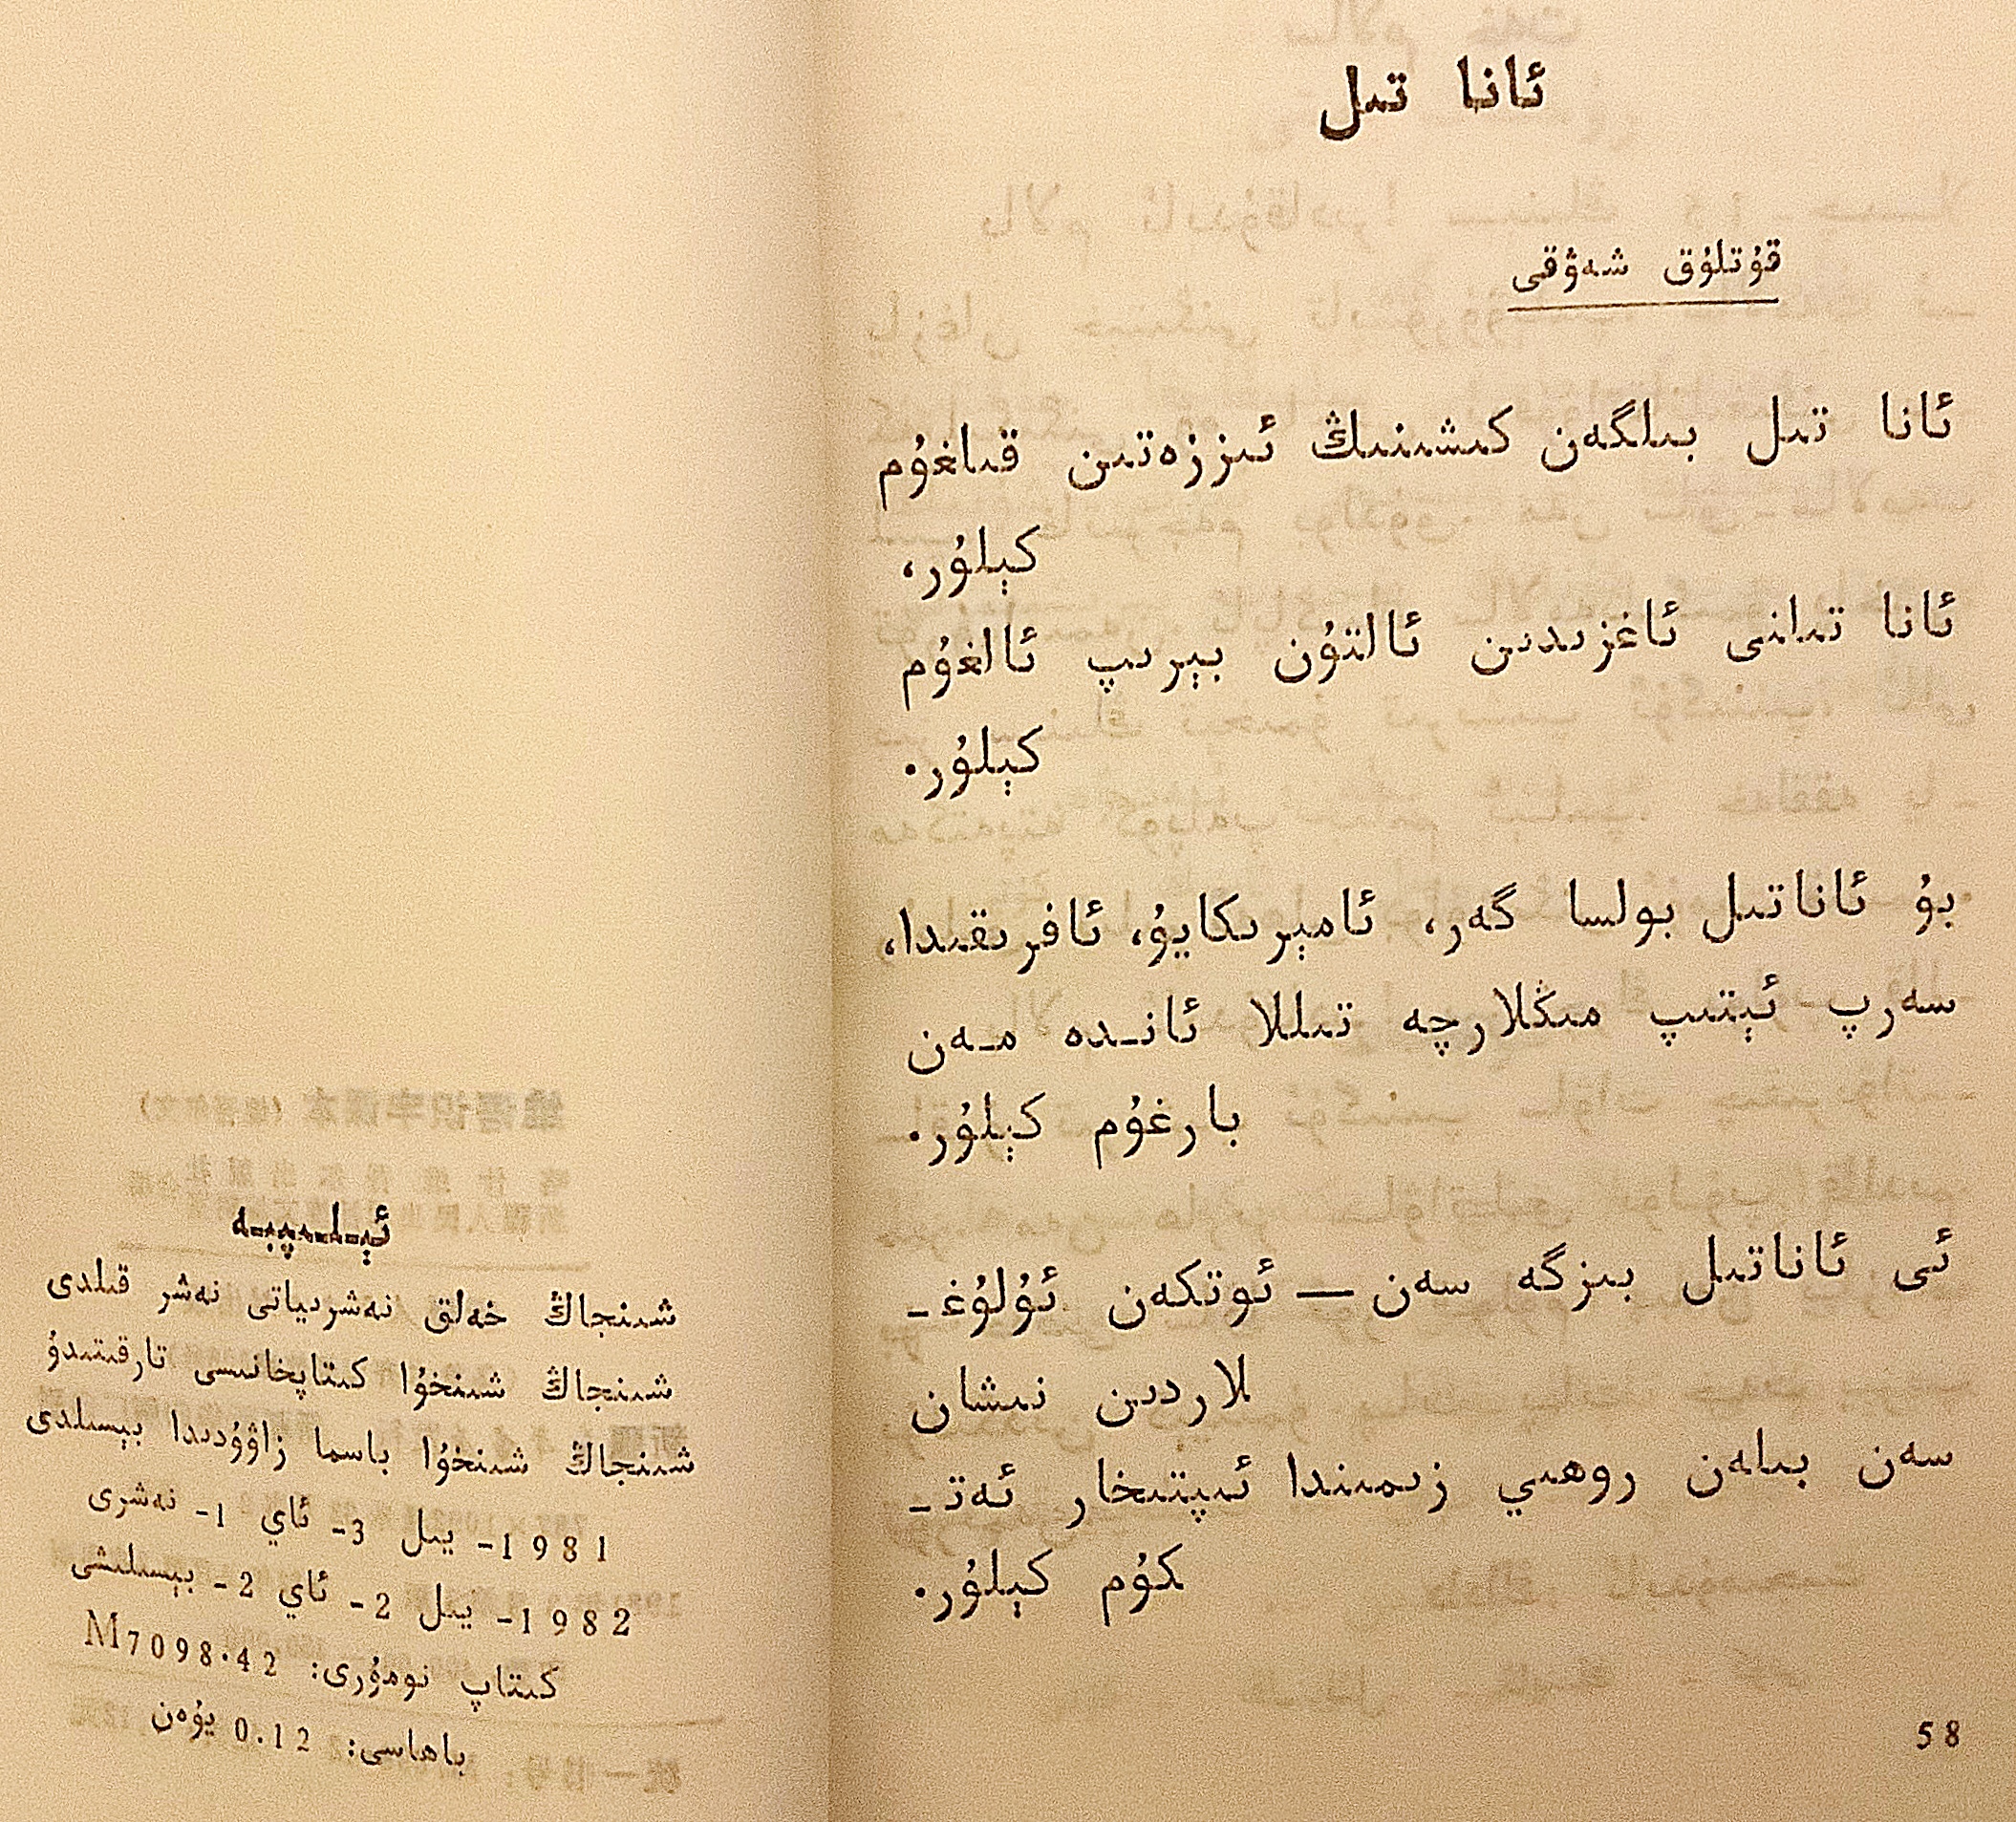 ئانا تىل
قۇتلۇق شەۋقى
ئانا تىل بىلگەن كىشىنىڭ ئىززەتىن قىلغۇم
كېلۇر،
ئانا تىلنى ئاغزىدىن ئالتۇن بېرىپ ئالغۇم
كېلۇر.
بۇ ئاناتىل بولسا گەر، ئامېرىكايۇ، ئافرىقىدا،
سەرپ ئېتىپ مىڭلارچە تىللا ئانـدە مـەن
بارغۇم كېلۇر.
ئى ئاناتىل بىزگە سەن — ئوتكەن ئۇلۇغـ-
لاردىن نىشان
سەن بىلەن روھىي زىمىندا ئىپتىخار ئەتـ-
كۇم كېلۇر.
58
ئېـلـىپبـە
شىنجاڭ خەلق نەشرىياتى نەشر قىلدى
شىنجاڭ شىنخۇا كىتاپخانىسى تارقىتىدۇ
شىنجاڭ شىنخۇا باسما زاۋۇدىدا بېسىلدى
1981- يىل 3- ئاي 1- نەشرى
1982- يىل 2- ئاي 2- بېسىلىشى
كىتاپ نومۇرى: M7098·42
باھاسى: 0.12 يۇەن